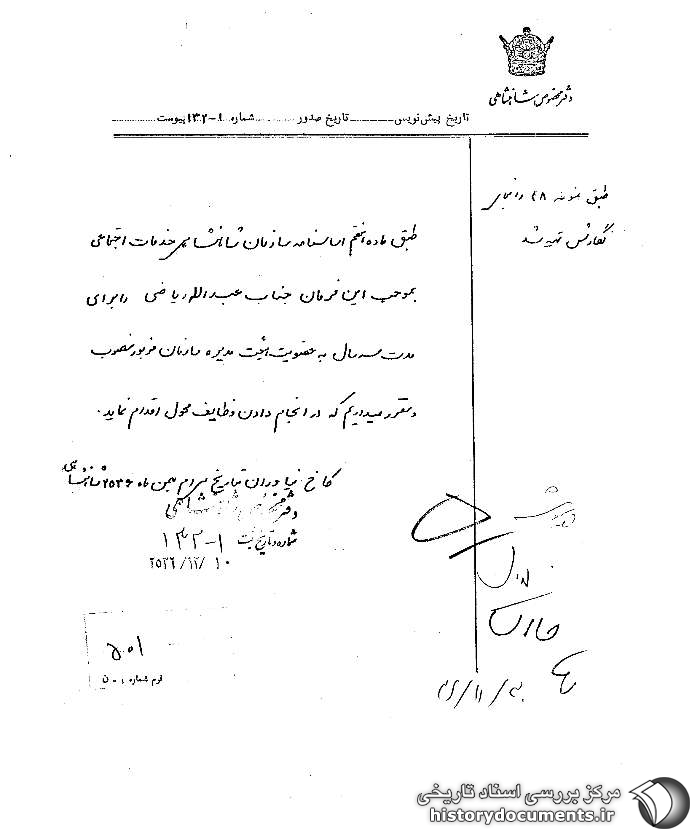 دفتر مخصوص شاهنشاهی
تاریخ پیش‌نویس تاریخ صدور شماره ۱-۱۳۲ پیوست
طبق نمونه ۴۸
تهیه شد
طبق ماده اساسنامه سازمان شاهنشاهی خدمات اجتماعی
بموجب این فرمان جناب عبدالله ریاضی را برای
مدت سه سال به عضویت هیئت مدیره سازمان مزبور منصوب
و مقرر میداریم که در انجام دادن وظایف محول اقدام نماید.
کاخ نیاوران بتاریخ بهمن ماه ۲۵۳۶ شاهنشاهی
دفتر مخصوص شاهنشاهی
شماره و تاریخ ثبت ۱-۱۳۲
۲۵۳۶/۱۲/۱۰
۵۰۱
فرم شماره
مرکز بررسی اسناد تاریخی
historydocuments.ir